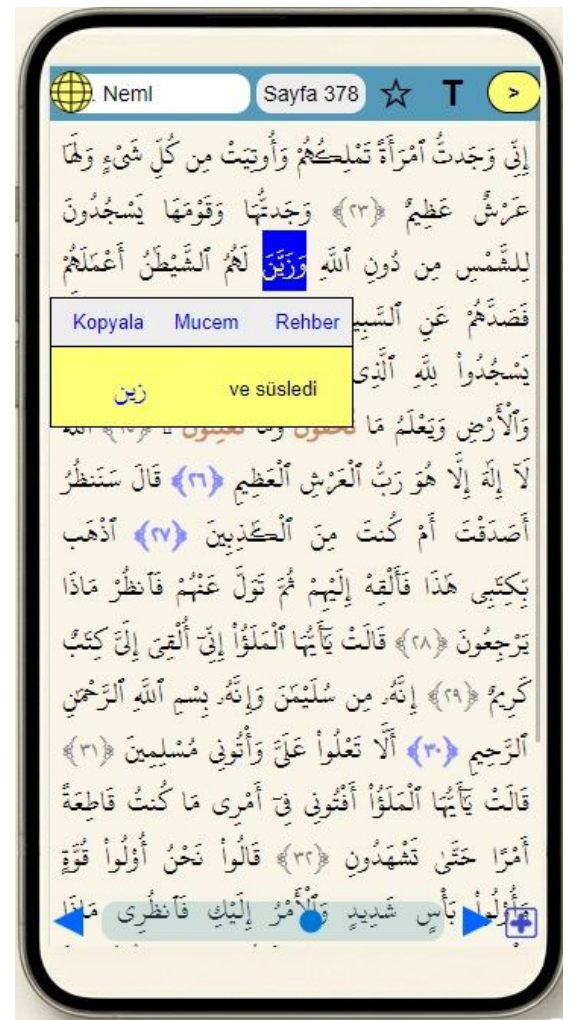 . Neml Sayfa 378 ☆ T >
إِنِّى وَجَدتُّ ٱمْرَأَةً تَمْلِكُهُمْ وَأُوتِيَتْ مِن كُلِّ شَىْءٍ وَلَهَا
عَرْشٌ عَظِيمٌ ﴿٢٣﴾ وَجَدتُّهَا وَقَوْمَهَا يَسْجُدُونَ
لِلشَّمْسِ مِن دُونِ ٱللَّهِ وَزَيَّنَ لَهُمُ ٱلشَّيْطَٰنُ أَعْمَٰلَهُمْ
فَصَدَّهُمْ عَنِ
Kopyala Mucem Rehber
يَسْجُدُوا۟ لِلَّهِ ٱلَّذِى
زين ve süsledi
وَٱلْأَرْضِ وَيَعْلَمُ مَا
لَآ إِلَٰهَ إِلَّا هُوَ رَبُّ ٱلْعَرْشِ ٱلْعَظِيمِ ﴿٢٦﴾ قَالَ سَنَنظُرُ
أَصَدَقْتَ أَمْ كُنتَ مِنَ ٱلْكَٰذِبِينَ ﴿٢٧﴾ ٱذْهَب
بِّكِتَٰبِى هَٰذَا فَأَلْقِهْ إِلَيْهِمْ ثُمَّ تَوَلَّ عَنْهُمْ فَٱنظُرْ مَاذَا
يَرْجِعُونَ ﴿٢٨﴾ قَالَتْ يَٰٓأَيُّهَا ٱلْمَلَؤُا۟ إِنِّىٓ أُلْقِىَ إِلَىَّ كِتَٰبٌ
كَرِيمٌ ﴿٢٩﴾ إِنَّهُۥ مِن سُلَيْمَٰنَ وَإِنَّهُۥ بِسْمِ ٱللَّهِ ٱلرَّحْمَٰنِ
ٱلرَّحِيمِ ﴿٣٠﴾ أَلَّا تَعْلُوا۟ عَلَىَّ وَأْتُونِى مُسْلِمِينَ ﴿٣١﴾
قَالَتْ يَٰٓأَيُّهَا ٱلْمَلَؤُا۟ أَفْتُونِى فِىٓ أَمْرِى مَا كُنتُ قَاطِعَةً
أَمْرًا حَتَّىٰ تَشْهَدُونِ ﴿٣٢﴾ قَالُوا۟ نَحْنُ أُو۟لُوا۟ قُوَّةٍ
وَأُو۟لُوا۟ بَأْسٍ شَدِيدٍ وَٱلْأَمْرُ إِلَيْكِ فَٱنظُرِى مَاذَا